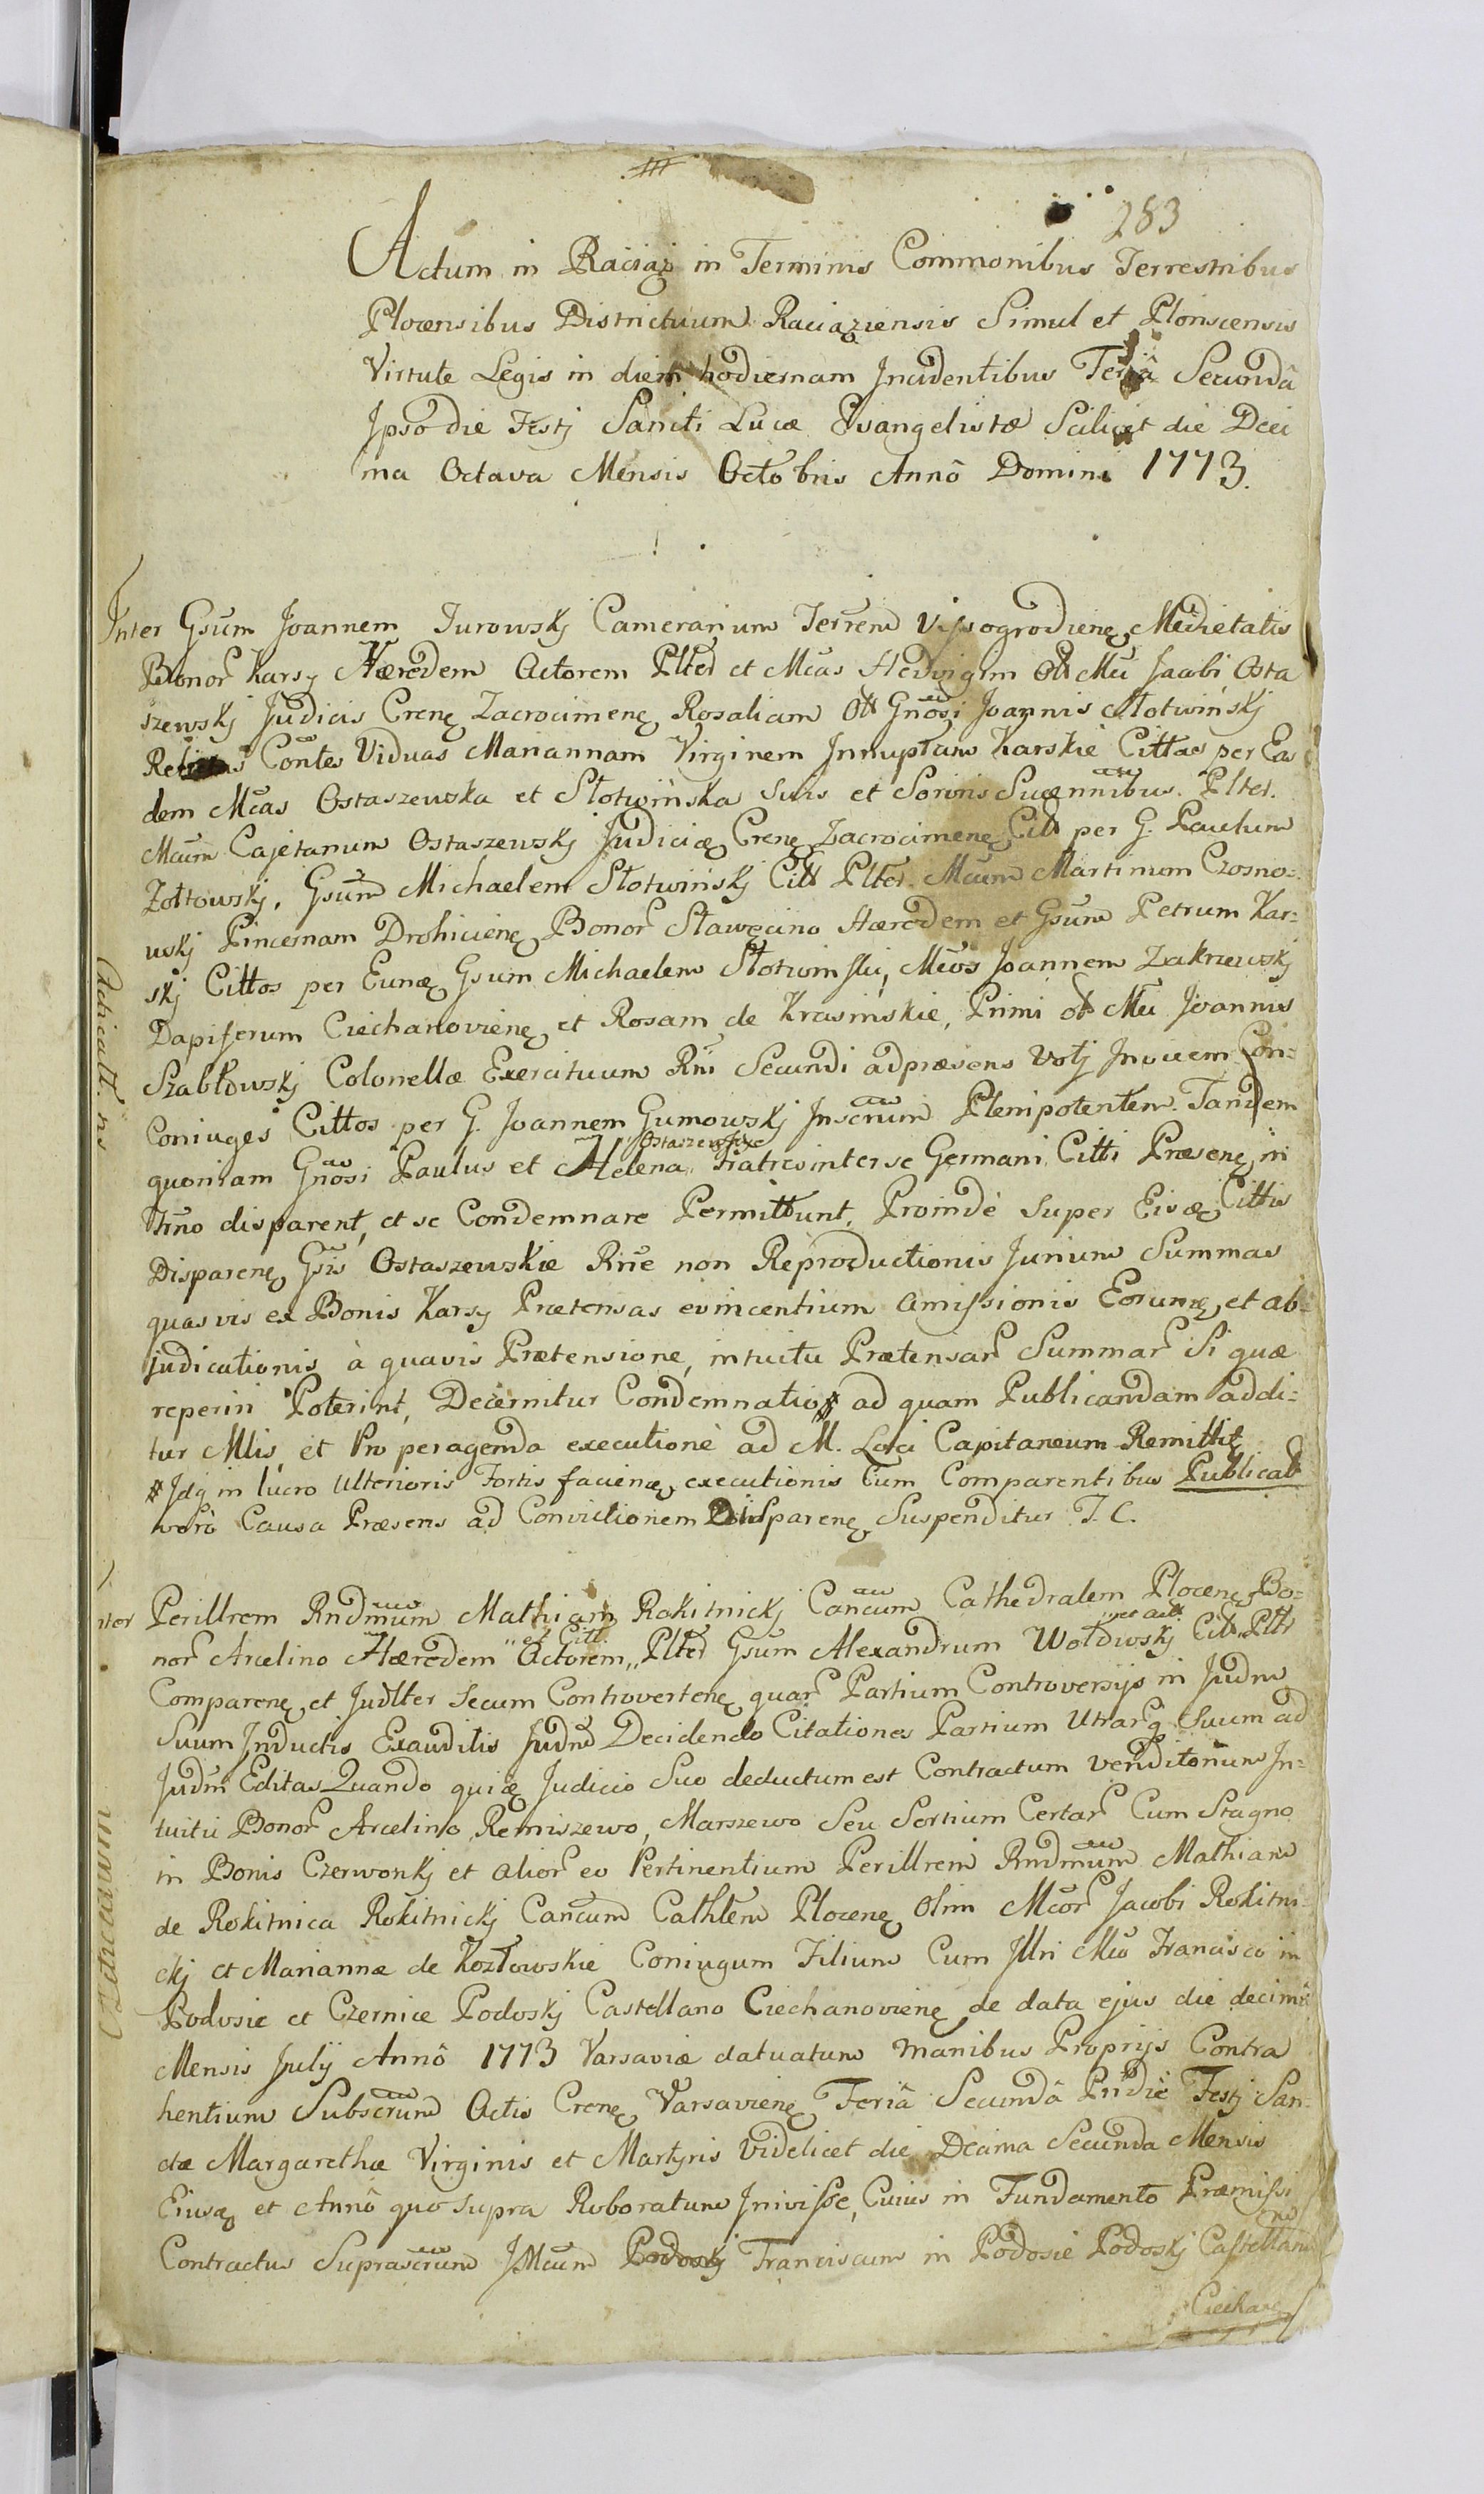 283
Actum in Raciąż in Terminis Commonibus Terrestribus
Plocensibus Districtuum Raciąziensis Simul et Plonscensis
Virtute Legis in diem hodiernam Jncidentibus Feriâ Secundâ
Jpso die Festj Sancti Lucæ Evangelistæ Scilicet die Deci
ma Octava Mensis Octobris Annô Domini 1773.
Inter Gsum Joannem Jurowskj Camerarium Terrem Vissogrodienę Medietatis
Bonor Karsy Hæredem Actorem Plted et Mcas Hedvigim Olt Mci Jacobi Osta
szewskj Judicis Crenę Zacrocimenę Rosaliam Olt Gnosi Joannis Słotwińskj
Relictas Contes Viduas Mariannam Virginem Jnnuptam Karskie Cittas per Eas
dem Mcas Ostaszewska et Słotwińska Suis et Sororis Sucennibus. Plted.
Mcum Cajetanum Ostaszewskj Judicię Crenę Zacrocimenę Citt per G. Paulum
Zołtowskj, Gsum Michaelem Słotwińskj Citt Plted. Mcum Martinum Czosno=
wskj Pincernam Drohicienę Bonor Sławęcino Hæredem et Gsum Petrum Kar=
skj Cittos per Eunę Gsum Michaelem Słotwinski, Mcos Joannem Zakrzewskj
Dapiferum Ciechanovienę et Rosam de Krasinskie, Primi olt Mci Joannis
Szabłowskj Colonellæ Exercituum Rni Secundi adpræsens Votj Jnvicem Con=
Coniuges Cittos per G. Joannem Gumowskj Jnscrum Plenipotentem. Tandem
quoniam Gnosi Paulus et Helena Ostaszewskie Fratres inter se Germani Citti Præsenę in
Tino disparent, et se Condemnare Permittunt, Proindè Super Eisdę Cittis
Disparenę Gsis Ostaszewskie Rne non Reproductionis Jurium Summas
quasvis ex Bonis Karsy Prætensas evincentium amissionis Eorumę, et ab=
judicationis à quavis Prætensione, intuitu Prætensar Summar Si quæ
reperiri Poterint, Decernitur Condemnatio # ad quam Publicandam addi=
tur Mlis, et Pro peragenda executionè ad M. Loci Capitaneum Remittitę
# Jdq in lucro Ulterioris Fortis facienę, executionis Cum Comparentibus Publicat
verò Causa Præsens ad Convictionem Disparenę Suspenditur T. C.
nter Perillrem Rndmum Mathiam Rokitnickj Cancum Cathedralem Plocenę Bo=
nor Arcelino Hæredem Actorem et Citt. Plted Gsum Alexandrum Wołowskj Citt. Pltr
Comparenę et Judlter Secum Controvertenę quar Partium Controversijs in Judm
Suum Jnductis Exauditis Judm Decidendo Citationes Partium Utrarq Suum ad
Judm Editas Quando quię Judicio Suo deductum est Contractum venditorium Jn=
tuitu Bonor Arcelino, Remiszewo, Marszewo Seu Sortium Certar Cum Stagno
in Bonis Czerwonkj et alior eo Pertinentium Perillrem Rndmum Mathiam
de Rokitnica Rokitnickj Cancum Cathlem Plocenę Olim Mcor Jacobi Rokitni=
ckj et Mariannæ de Kozłowskie Coniugum Filium Cum Jllri Mco Francisco in
Podosie et Czernice Podoskj Castellano Ciechanovienę de data ejus die decimâ
Mensis Julij Annô 1773 Varsaviæ datuatum Manibus Proprijs Contra
hentium Subscrum Actis Crenę Varsavienę Feriâ Secundâ Pridiè Festj San=
ctæ Margarethæ Virginis et Martyris Videlicet die Decima Secunda Mensis
Eiusę et Annô quo Supra Roboratum Jnivisse, Cuius in Fundamento Præmissi
Contractus Suprascrum JMcum Podoskj Franciscum in Podosie Podoskj Castellanum
Ciechan